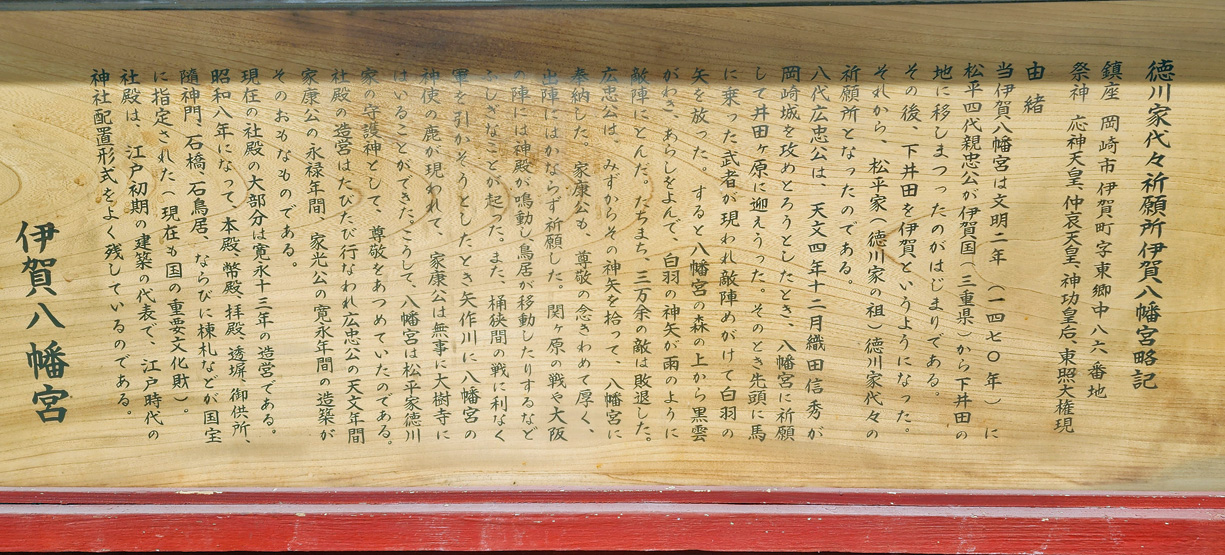 徳川家代々祈願所伊賀八幡宮略記
鎮座　岡崎市伊賀町字東郷中八六番地
祭神　応神天皇、仲哀天皇、神功皇后、東照大権現
由緒
当伊賀八幡宮は文明二年（一四七〇年）に
松平四代親忠公が伊賀国（三重県）から下井田の
地に移しまつったのがはじまりである。
その後、下井田を伊賀というようになった。
それから、松平家（徳川家の祖）徳川家代々の
祈願所となったのである。
八代広忠公は、天文四年十二月織田信秀が
岡崎城を攻めとろうとしたとき、八幡宮に祈願
して井田ヶ原に迎えうった。そのとき先頭に馬
に乗った武者が現われ敵陣めがけて白羽の
矢を放った。すると八幡宮の森の上から黒雲
がわき、あらしをよんで、白羽の神矢が雨のように
敵陣にとんだ。たちまち、三万余の敵は敗退した。
広忠公は、みずからその神矢を拾って、八幡宮に
奉納した。家康公も、尊敬の念きわめて厚く、
出陣にはかならず祈願した。関ヶ原の戦や大阪
の陣には神殿が鳴動し鳥居が移動したりするなど
ふしぎなことが起った。また、桶狭間の戦に利なく
軍を引かそうとしたとき矢作川に八幡宮の
神使の鹿が現われて、家康公は無事に大樹寺に
はいることができた。こうして、八幡宮は松平家徳川
家の守護神として、尊敬をあつめていたのである。
社殿の造営はたびたび行なわれ広忠公の天文年間
家康公の永禄年間、家光公の寛永年間の造築が
そのおもなものである。
現在の社殿の大部分は寛永十三年の造営である。
昭和八年になって、本殿、幣殿、拝殿、透塀、御供所、
隨神門、石橋、石鳥居、ならびに棟札などが国宝
に指定された（現在も国の重要文化財）。
社殿は、江戸初期の建築の代表で、江戸時代の
神社配置形式をよく残しているのである。
伊賀八幡宮